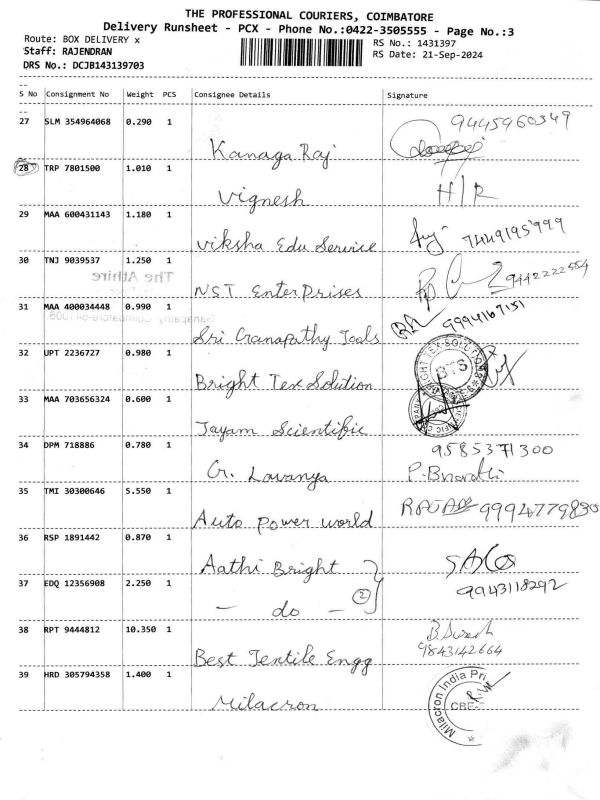 THE PROFESSIONAL COURIERS, COIMBATORE
Delivery Runsheet - PCX - Phone No.:0422-3505555 - Page No.:3
Route: BOX DELIVERY x
RS No.: 1431397
Staff: RAJENDRAN
RS Date: 21-Sep-2024
DRS No.: DCJB143139703
S No Consignment No Weight PCS Consignee Details Signature
27 SLM 354964068 0.290 1
9445960349
Kanaga Raj
28 TRP 7801500 1.010 1
Vignesh H/R
29 MAA 600431143 1.180 1
Viksha Edu Service 7449195999
30 TNJ 9039537 1.250 1
The Athire
NST EnterPrises 9442222554
31 MAA 400034448 0.990 1
Sri Ganapathy Tools 9994167151
32 UPT 2236727 0.980 1
Bright Tex Solution BRIGHT TEX SOLUTIONS BTS
33 MAA 703656324 0.600 1
Jayam Scientific
34 DPM 718886 0.780 1
9585371300
G. Lavanya P. Bharathi
35 TMI 30300646 5.550 1
Auto power world 9994779830
36 RSP 1891442 0.870 1
Aathi Bright
37 EDQ 12356908 2.250 1
9943118292
- do - 2
38 RPT 9444812 10.350 1
B. Suresh
9843142664
Best Textile Engg
39 HRD 305794358 1.400 1
Milacron Milacron India Pri CBE